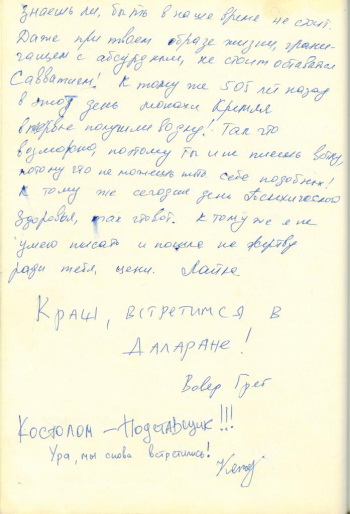 знаешь ли, быть в наше время не стоит.
Даже при твоем образе жизни, грани-
чащем с абсурдным, не стоит оставаться
Савватием! К тому же 505 лет назад
в этот день монахи Кремля
впервые получили водку! Так что
возможно, поэтому ты и не пьешь водку,
потому что не можешь себе подобных!
К тому же сегодня день Психического
Здоровья, так что вот. К тому же я не
умею писать и пошла на жертву
ради тебя, цени. Лайна
Краш, встретимся в
Даларане!
Вовер Грег
Костолом - Подставщик!!!
Ура, мы снова встретились!